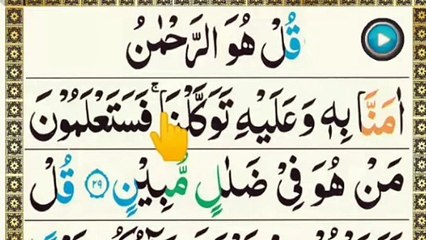 قُلْ هُوَ الرَّحْمٰنُ
اٰمَنَّا بِهٖ وَعَلَيْهِ تَوَكَّلْنَا ۚ فَسَتَعْلَمُوْنَ
مَنْ هُوَ فِيْ ضَلٰلٍ مُّبِيْنٍ ۝۲۹ قُلْ